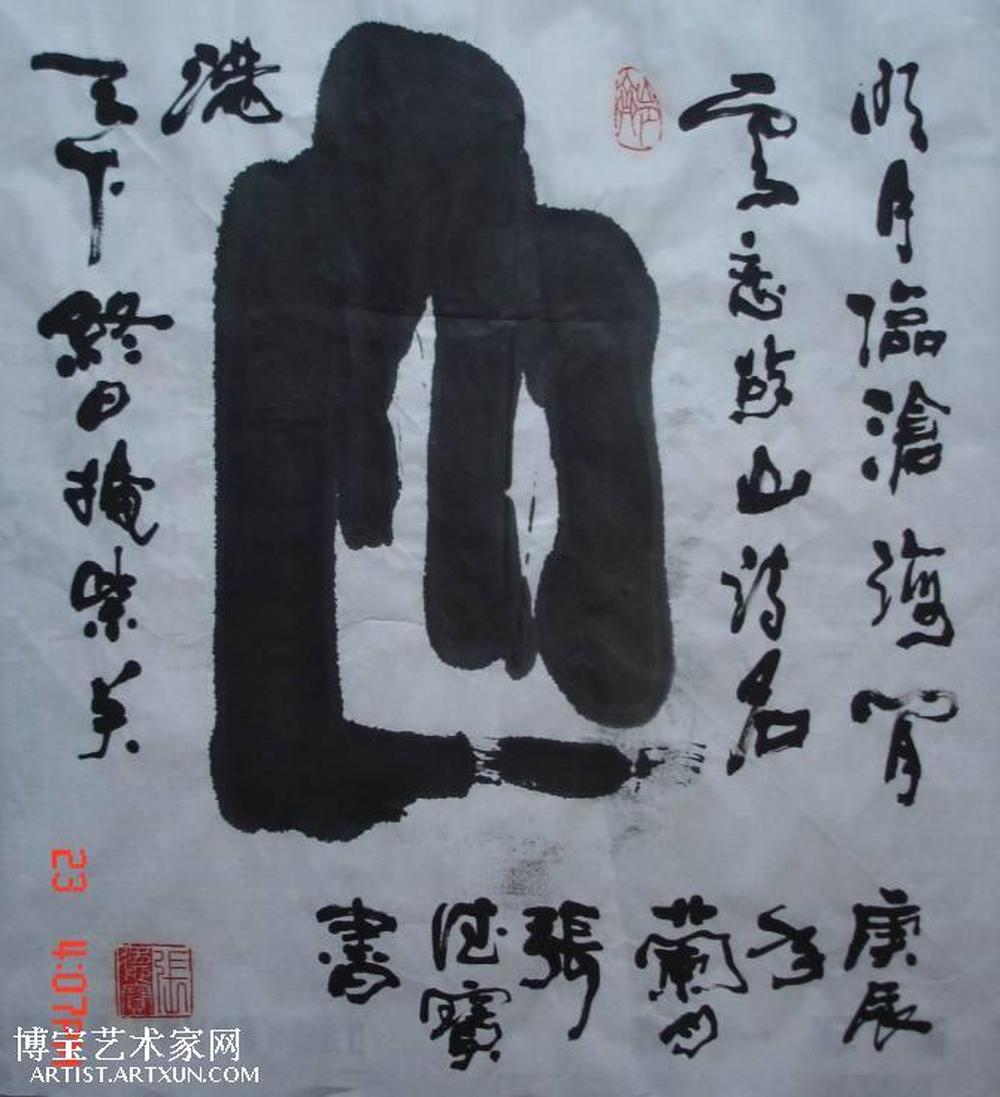 明月臨滄海閒
雲戀故山詩名
滿
天下終日掩柴关
庚辰
年
蘭月
張
德寶
書
張德寶
23 4:07PM
博宝艺术家网
ARTIST.ARTXUN.COM